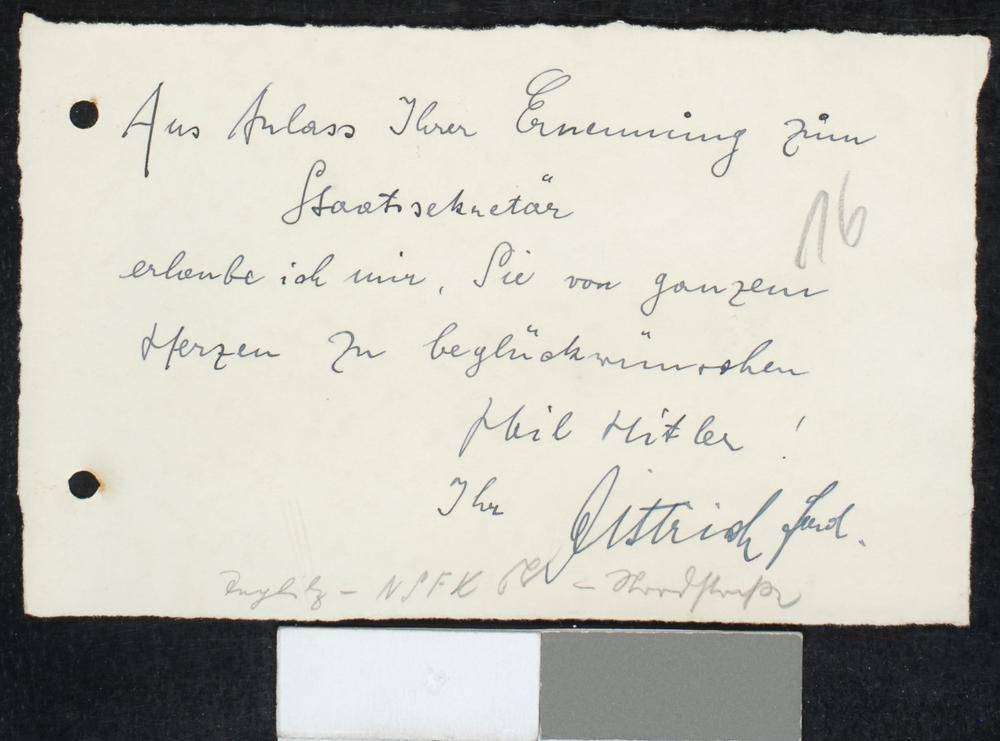 Aus Anlass Ihrer Ernennung zum
Staatssekretär
16
erlaube ich mir, Sie von ganzem
Herzen zu beglückwünschen
Heil Hitler!
Ihr Dittrich Ferd.
– NSFK – Nordstraße